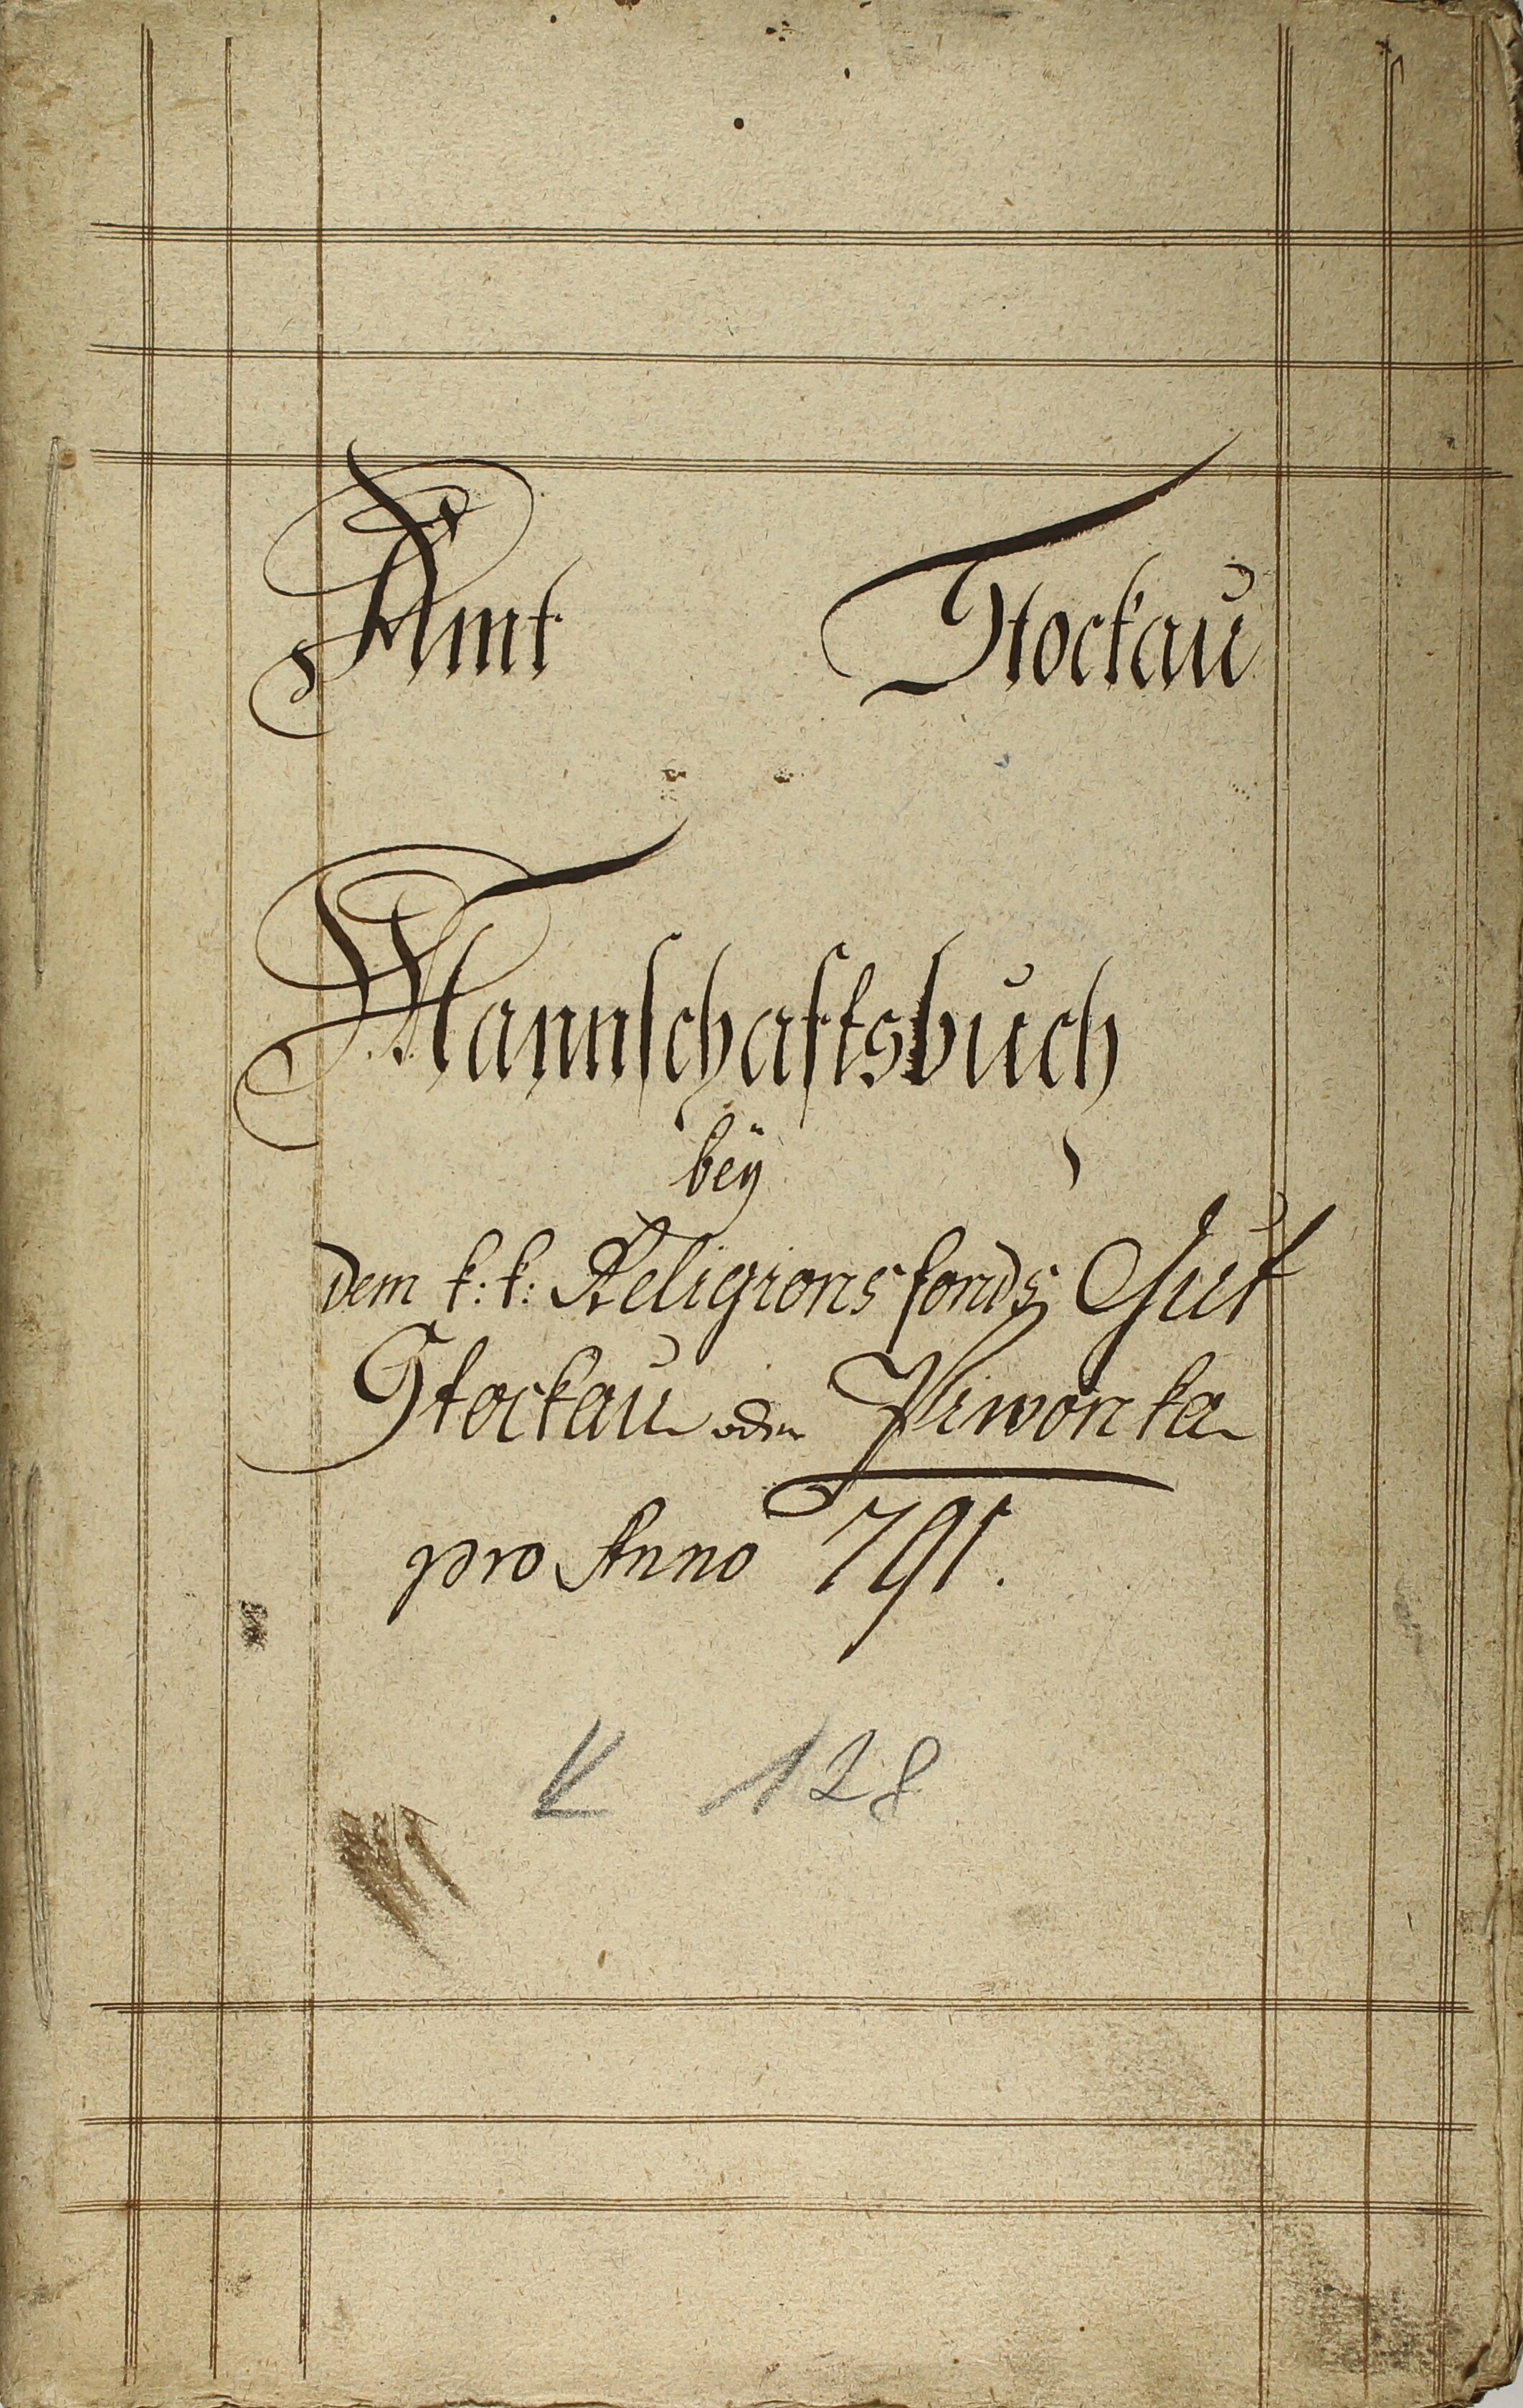 Amt Stockau
Mannschaftsbuch
beÿ
dem k: k: Religionsfonds Gut
Stockau oder Piwonka
pro Anno 791.
K 128